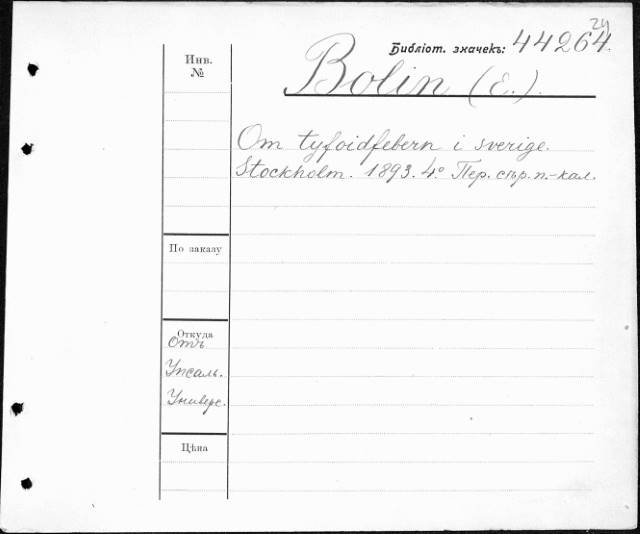 24
Библіот. значекъ: 44264.
Инв.
№
Bolin (E.).
Om tyfoidfebern i sverige.
Stockholm. 1893. 4º Пер. стр. п.-кал.
По заказу
Откуда
Отъ
Упсаль.
Универс.
Цѣна